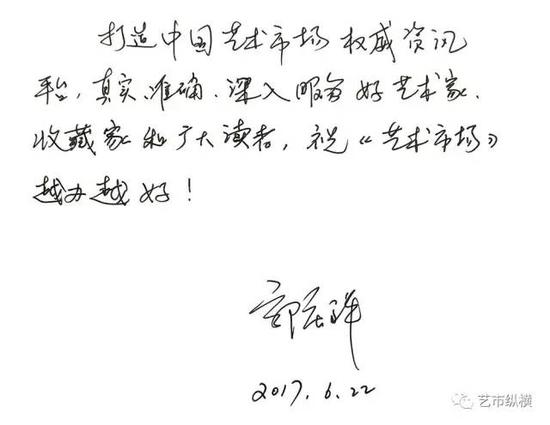 打造中国艺术市场权威资讯
平台，真实、准确、深入服务好艺术家、
收藏家和广大读者，祝《艺术市场》
越办越好！
2017.6.22
艺市纵横